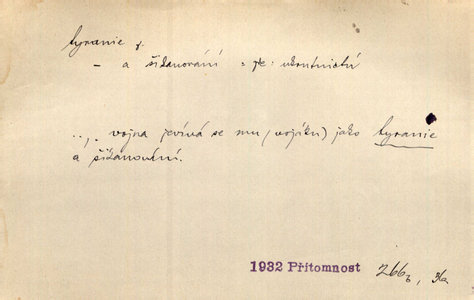 tyranie f.
– a šikanování = jk: ukrutnictví
..,. vojna jevívá se mu (vojáku) jako tyranie
a šikanování.
1932 Přítomnost 266b,